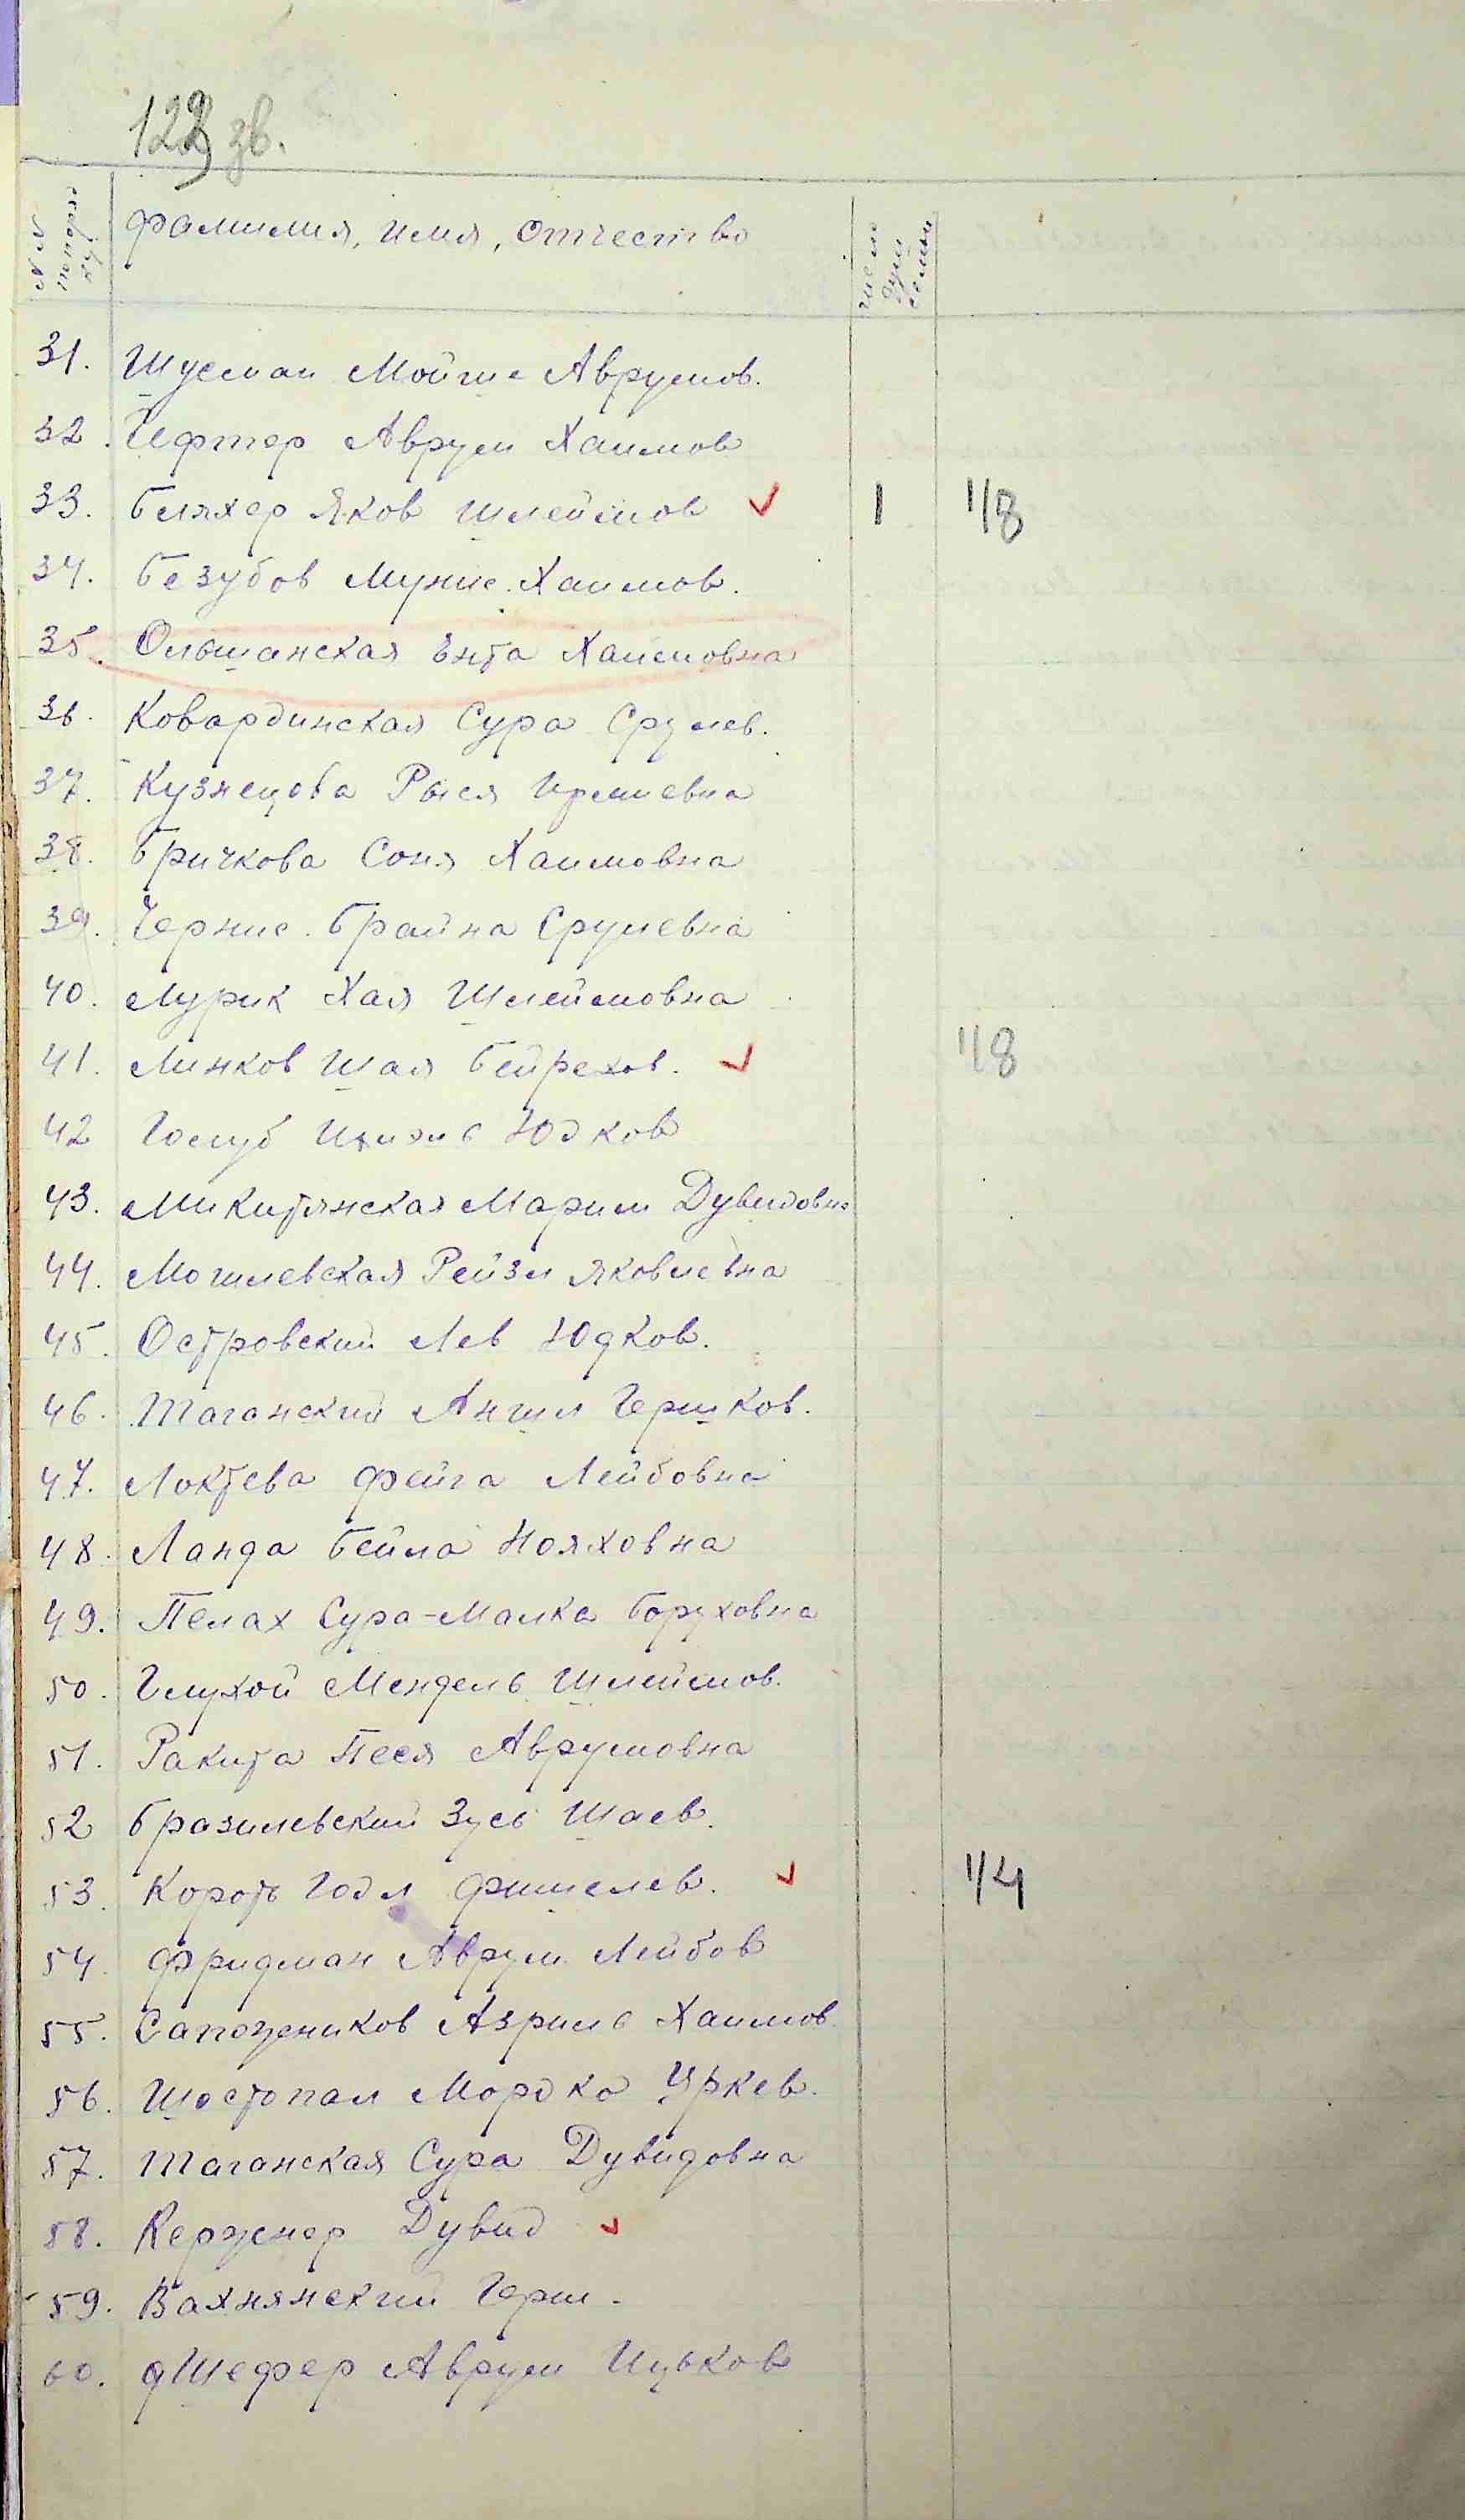 123 зв.
№ № по поряд ку
Фамилия, имя, отчество
число душ семьи
31. Шусман Мойше Аврумов.
32. Чефтер Аврум Хаимов
33. Бляхер Яков Шлеймов 1 1/8
34. Безубов Мунис. Хаимов.
35. Ольшанская Энта Хаимовна
36. Ковардинская Сура Срулев.
37. Кузнецова Рыся
38. Бричкова Соня Хаимовна
39. Черние. Брайна Срулевна
40. Лурик Хая Шлеймовна
41. Линков Шая Бейрехов. 1/8
42 Голуб Юдков
43. Микитянская Марим Дувидовна
44. Могилевская Рейзл Яковлевна
45. Островский Лев Юдков.
46. Таганский Аншл Гершков.
47. Локтева Фейга Лейбовна
48. Ланда Бейла Нояховна
49. Пелах Сура-Малка Боруховна
50. Глухой Мендель Шлеймов.
51. Ракита Песя Аврумовна
52 Бразилевский Зусь Шаев.
53. Короть Годл Фишелев. 1/4
54. Фридман Аврум Лейбов
55. Сапожников Азриль Хаимов.
56. Шостопал Мордко Уркев.
57. Таганская Сура Дувидовна
58. Кержнер Дувид
59. Вахнянский Герш.
60. Шефер Аврум Ицьков